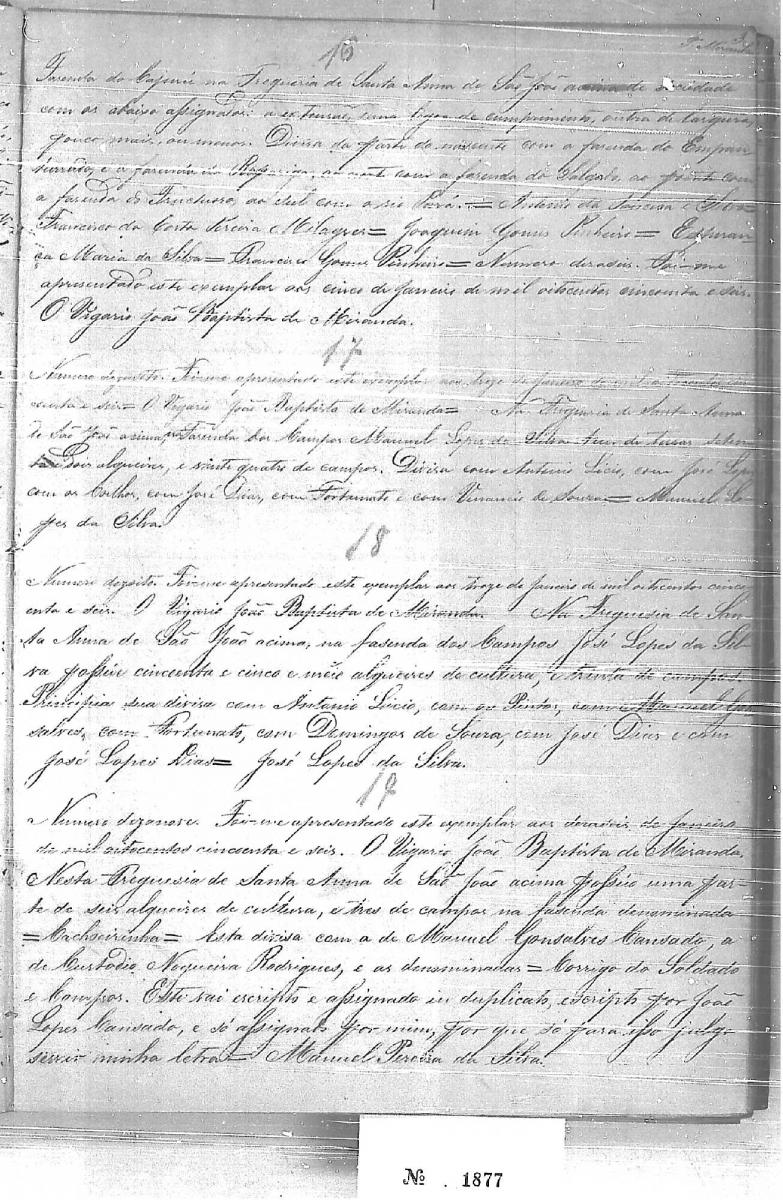 16
Fazenda do Capurú na Freguesia de Santa Anna de São João acima de sociedade
com os abaixo assignados: a extensão, huma legoa de comprimento, outra de largura,
pouco mais, ou menos. Divisa da parte do nascente com a fazenda do Empan
turrado, e a fazenda da ao norte com a fazenda do Salgado, ao poente com
a fazenda do Fructuoso, ao sul com o rio Pará. = Antonio da e
Francisco da Costa Pereira Milagres = Joaquim Gomes Pinheiro = Esperan
ça Maria da Silva = Francisco Gomes Pinheiro = Numero deraseis. Foi-me
apresentado este exemplar aos cinco de Janeiro de mil oitocentos cincoenta e seis.
O Vigario João Baptista de Miranda.
17
Numero dezasette. Foi-me apresentado este exemplar aos treze de Janeiro de mil oitocentos cin
coenta e seis = O Vigario João Baptista de Miranda = Na Freguesia de Santa Anna
de São João acima, na Fazenda dos Campos Manuel Lopes da Silva de terras
dois alqueires, e vinte quatro de campos. Divisa com Antonio Licio, com José Lopes
com os Coelhos, com José Dias, com Fortunato e com Venancio de Souza = Manuel Lo
pes da Silva.
18
Numero dezoito. Foi-me apresentado este exemplar aos treze de Janeiro de mil oitocentos cinco
enta e seis. O Vigario João Baptista de Miranda. Na Freguesia de San
ta Anna de São João acima, na fasenda dos Campos José Lopes da Sil
va possúe cincoenta e cinco e meio alqueires de cultura, e trinta de campos.
Principia sua divisa com Antonio Licio, com os Pintos, com Manuel Gon
salves, com Fortunato, com Domingos de Soura, com José Dias e com
José Lopes Dias = José Lopes da Silva.
19
Numero dezanove. Foi-me apresentado este exemplar aos deraseis de Janeiro
de mil oitocentos cincoenta e seis. O Vigario João Baptista de Miranda.
Nesta Freguesia de Santa Anna de São João acima possúo uma par
te de seis alqueires de cultura, e tres de campos na fasenda denominada
= Cachoeirinha = Esta divisa com a de Manuel Gonsalves Cansado, a
de Custodio Nogueira Rodrigues, e as denominadas = Corrigo do Soldado
e Campos. Este vai escripto e assignado in duplicato, escripto por João
Lopes Cansado, e só assignado por mim, por que só para isso julgo
servir minha letra = Manuel Pereira da Silva.
Nº . 1877